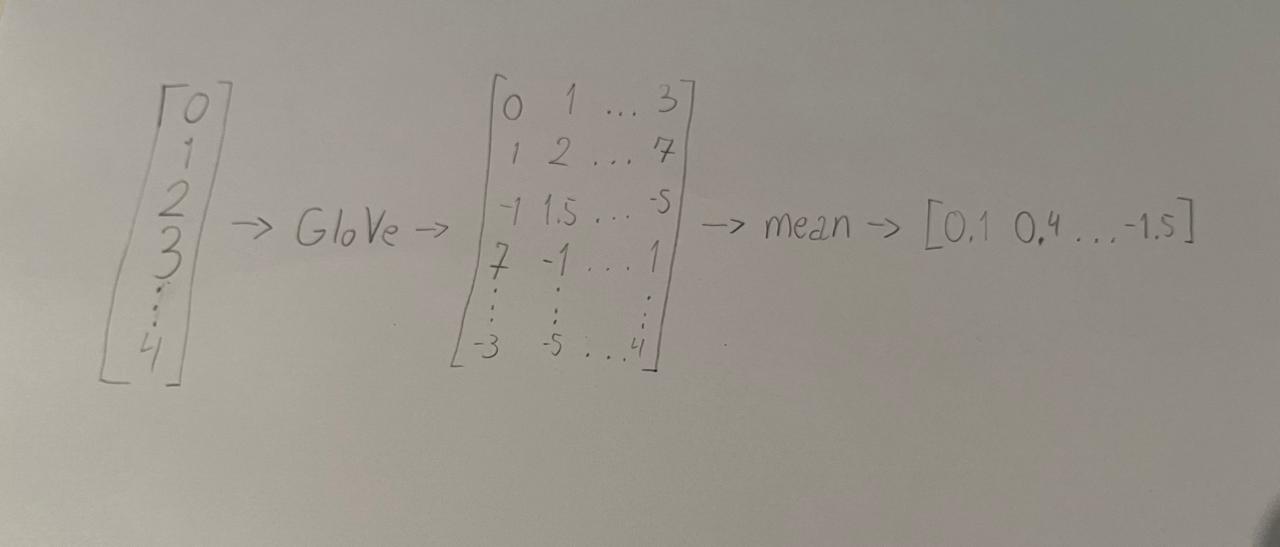 [0
1
2
3
⋮
4] → GloVe → [0 1 ... 3
1 2 ... 7
-1 1.5 ... -5
7 -1 ... 1
⋮ ⋮ ⋮
-3 -5 ... 4] → mean → [0.1 0.4 ... -1.5]